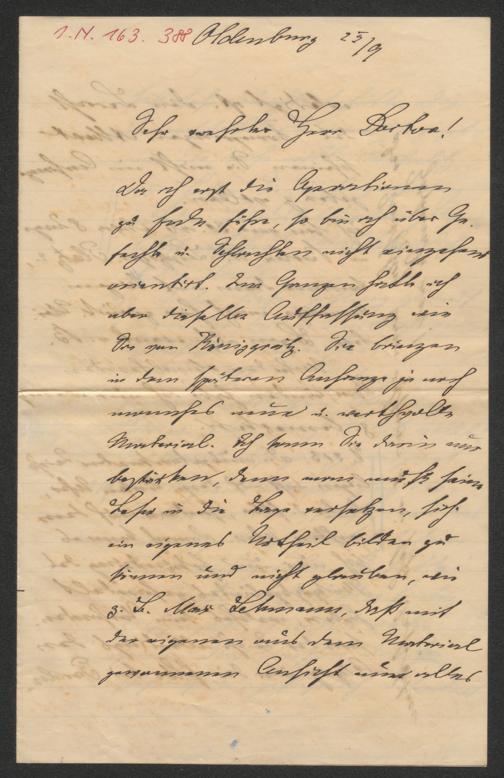 I. N. 163.388 Oldenburg 25/9
Sehr verehrter Herr Doctor!
Da ich erst die Operationen
zu Ende führe, so bin ich über Ge-
fechte u. Schlachten nicht eingehend
orientirt. Im Ganzen hatte ich
aber dieselbe Auffassung wie
Sie von Königgrätz. Sie bringen
in dem späteren Anhange ja noch
manches neue u. werthvolle
Material. Ich kann Sie darin nur
bestärken, denn man muß seine
Leser in die Lage versetzen, sich
ein eigenes Urtheil bilden zu
können und nicht glauben, wie
z. B. Max Lehmann, daß mit
der eigenen aus dem Material
gewonnenen Ansicht nun alles